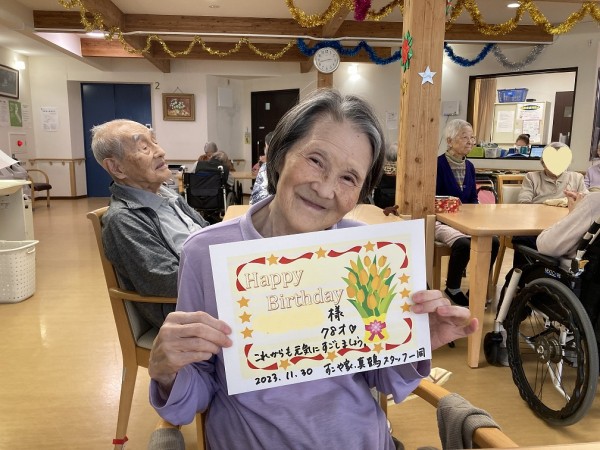 Happy
Birthday
様
78才♡
これからも元気にすごしましょう
2023.11.30 すこや家、真鶴スタッフ一同
2